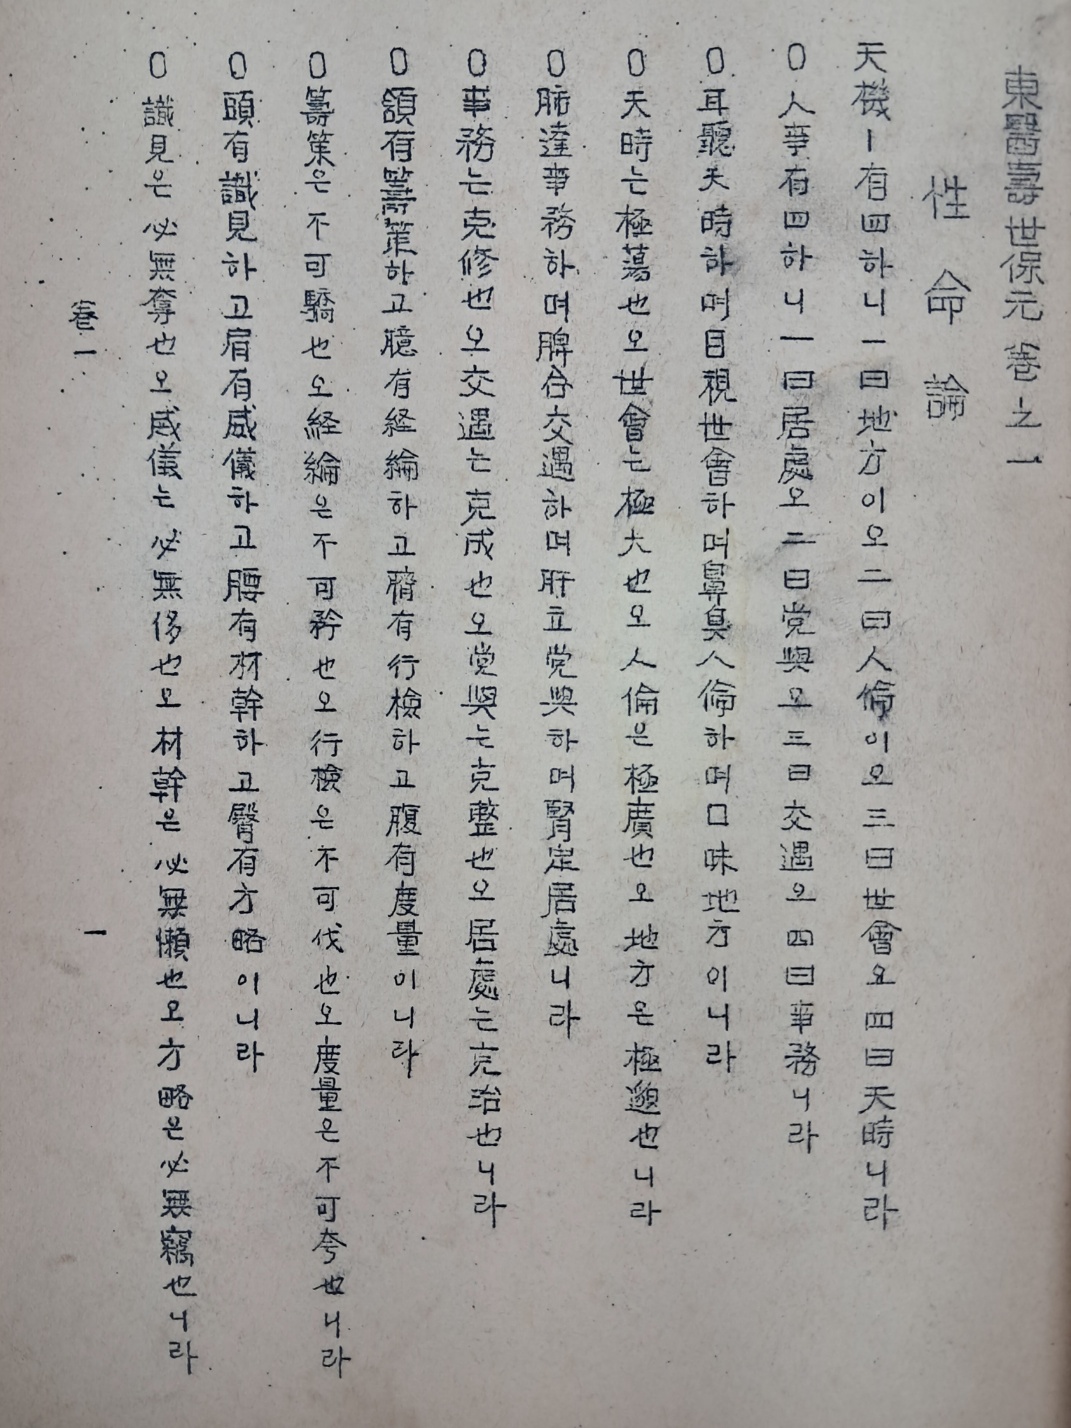 東醫壽世保元 卷之一
性命論
天機ㅣ有四하니一曰地方이오二曰人倫이오三曰世會오四曰天時니라
○人事有四하니一曰居處오二曰党與오三曰交遇오四曰事務니라
○耳聽天時하며目視世會하며鼻臭人倫하며口味地方이니라
○天時는極蕩也오世會는極大也오人倫은極廣也오地方은極邈也니라
○肺達事務하며脾合交遇하며肝立党與하며腎定居處니라
○事務는克修也오交遇는克成也오党與는克整也오居處는克治也니라
○頷有籌策하고臆有経綸하고臍有行檢하고腹有度量이니라
○籌策은不可驕也오経綸은不可矜也오行檢은不可伐也오度量은不可夸也니라
○頭有識見하고肩有威儀하고腰有材幹하고臀有方略이니라
○識見은必無奪也오威儀는必無侈也오材幹은必無懶也오方略은必無竊也니라
卷一
一